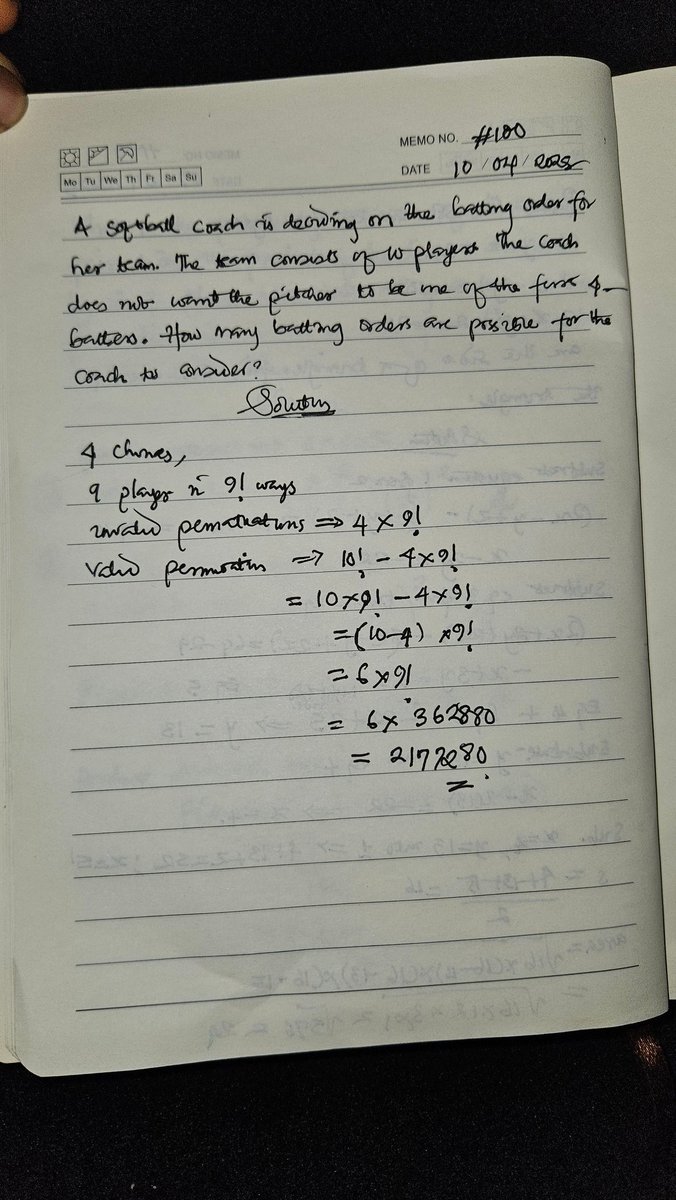 MEMO NO. #100
Mo Tu We Th Fr Sa Su
DATE 10/04/2025
A softball coach is deciding on the batting order for
her team. The team consists of 10 players. The coach
does not want the pitcher to be one of the first 4
batters. How many batting orders are possible for the
coach to consider?
Solution
4 choices,
9 players in 9! ways
invalid permutations => 4 x 9!
Valid permutation => 10! - 4x9!
= 10x9! - 4x9!
= (10-4) x9!
= 6x9!
= 6x 362880
= 2177280